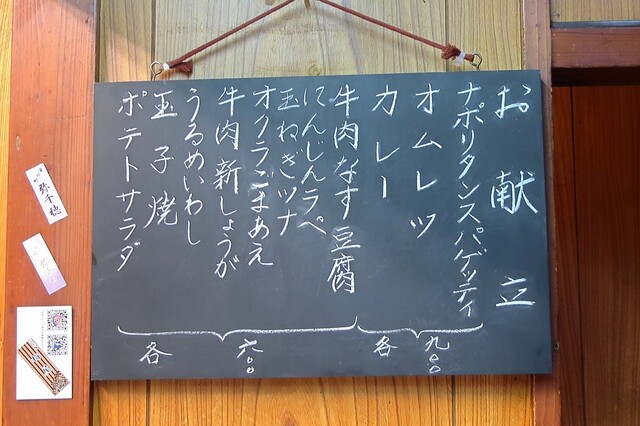 お献立
ナポリタンスパゲッティ
オムレツ
カレー
各九〇〇
牛肉なす豆腐
にんじんラペ
玉ねぎツナ
オクラごまあえ
牛肉新しょうが
うるめいわし
玉子焼
ポテトサラダ
各六〇〇
弥千穂